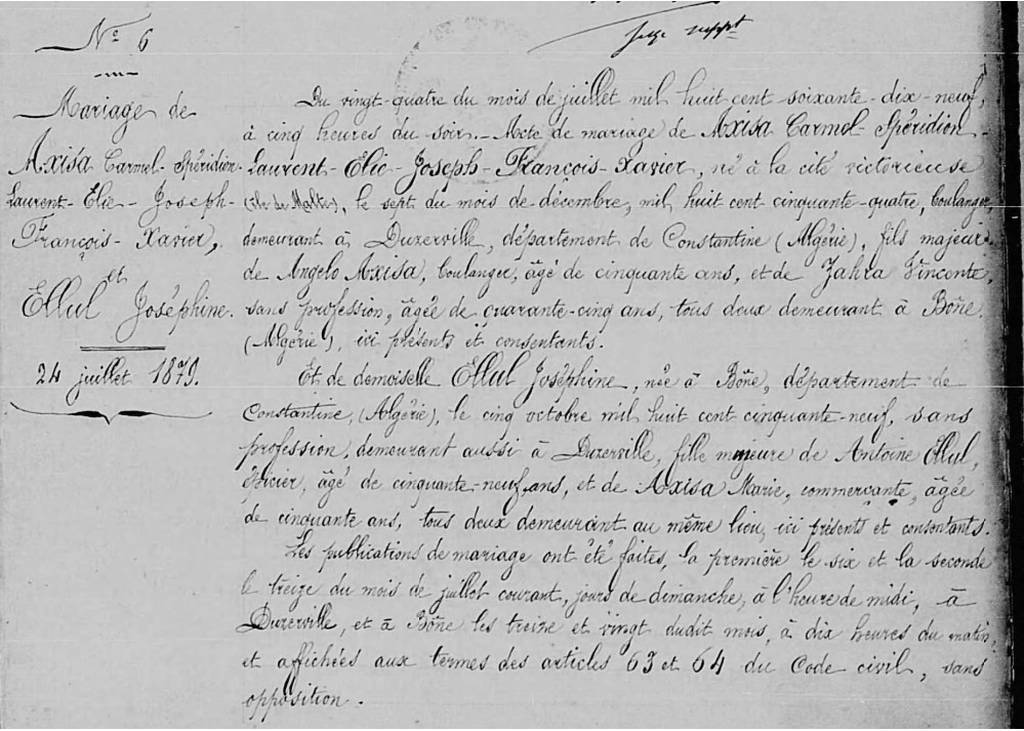 Nº 6
Mariage de
Axisa Carmel-Spéridion-
Laurent-Elie-Joseph-
François-Xavier,
et
Ellul Joséphine.
24 juillet 1879.
juge suppt
Du vingt-quatre du mois de juillet mil huit cent soixante-dix-neuf,
à cinq heures du soir.- Acte de mariage de Axisa Carmel-Spéridion-
Laurent-Elie-Joseph-François-Xavier, né à la cité victorieuse
(île de Malte), le sept du mois de décembre, mil huit cent cinquante-quatre, boulanger,
demeurant à Duzerville, département de Constantine (Algérie), fils majeur
de Angelo Axisa, boulanger, âgé de cinquante ans, et de Zahra Vincente,
sans profession, âgée de quarante-cinq ans, tous deux demeurant à Bône,
(Algérie), ici présents et consentants.
Et de demoiselle Ellul Joséphine, née à Bône, département de
Constantine, (Algérie), le cinq octobre mil huit cent cinquante-neuf, sans
profession, demeurant aussi à Duzerville, fille mejeure de Antoine Ellul,
épicier, âgé de cinquante-neuf ans, et de Axisa Marie, commerçante, âgée
de cinquante ans, tous deux demeurant au même lieu, ici présents et consentants.
Les publications de mariage ont été faites, la première le six et la seconde
le treize du mois de juillet courant, jours de dimanche, à l'heure de midi, à
Duzerville, et à Bône les treize et vingt dudit mois, à dix heures du matin
et affichées aux termes des articles 63 et 64 du Code civil, sans
opposition.